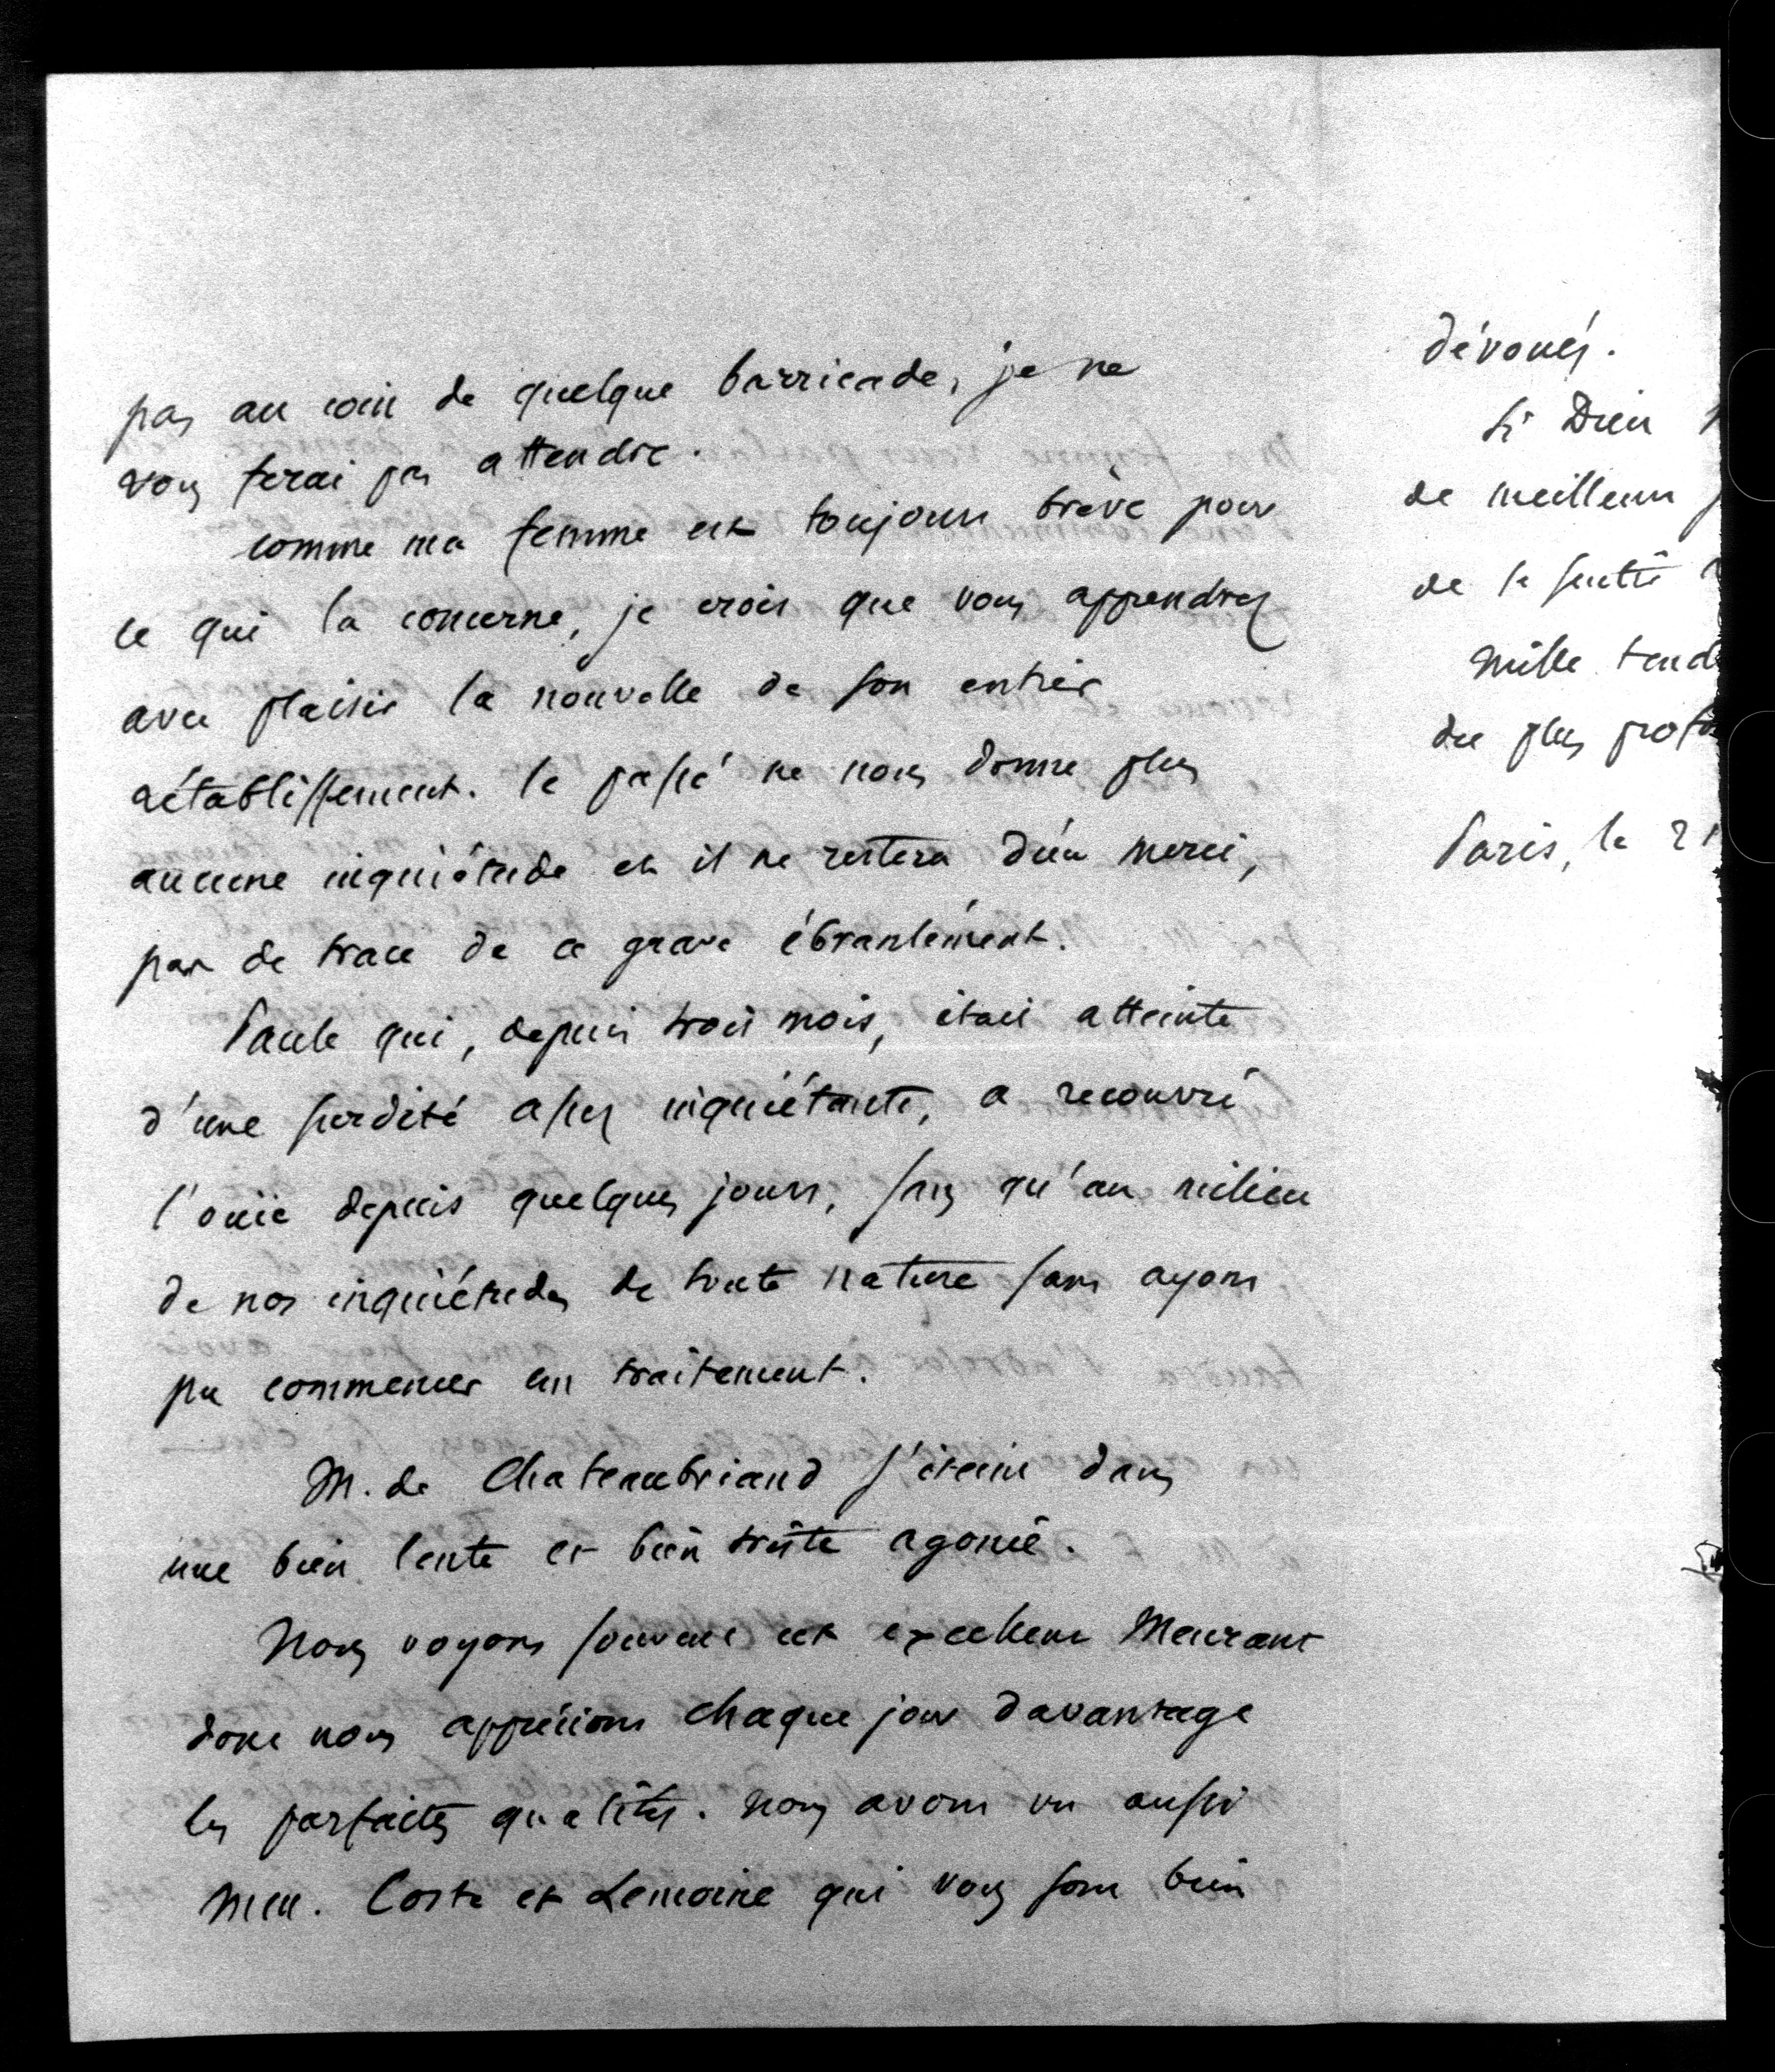 pas au coin de quelque barricade, je ne
vous ferai pas attendre.
comme ma femme est toujours brève pour
ce qui la concerne, je crois que vous apprendrez
avec plaisir la nouvelle de son entier
rétablissement. le passé ne nous donne plus
aucune inquiétude et il ne restera dieu merci,
pas de trace de ce grave ébranlement.
Paule qui, depuis trois mois, était atteinte
d'une surdité assez inquiétante, a recouvré
l'ouïe depuis quelques jours, sans qu'au milieu
de nos inquiétudes de toute nature sans ayons
pu commencer un traitement.
M. de Chateaubriand s'éteint dans
une bien lente et bien triste agonie.
Nous voyons souvent cet excellent Meurant
dont nous apprécions chaque jour davantage
les parfaites qualités. nous avons vu aussi
Mrs. Coste et Lemoine qui vous sont bien
dévoués.
Si Dieu
de meilleurs
de la
Mille tend
du plus profo
Paris, le 21